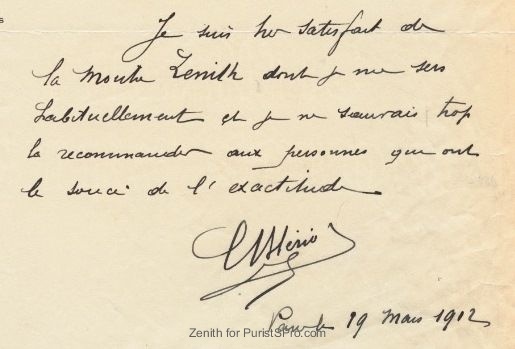 s
Je suis tres satisfait de
la montre Zenith dont je me sers
habituellement et je ne saurais trop
la recommander aux personnes qui ont
le souci de l'exactitude
L Blériot
19 Mars 1912
Zenith for PuristSPro.com